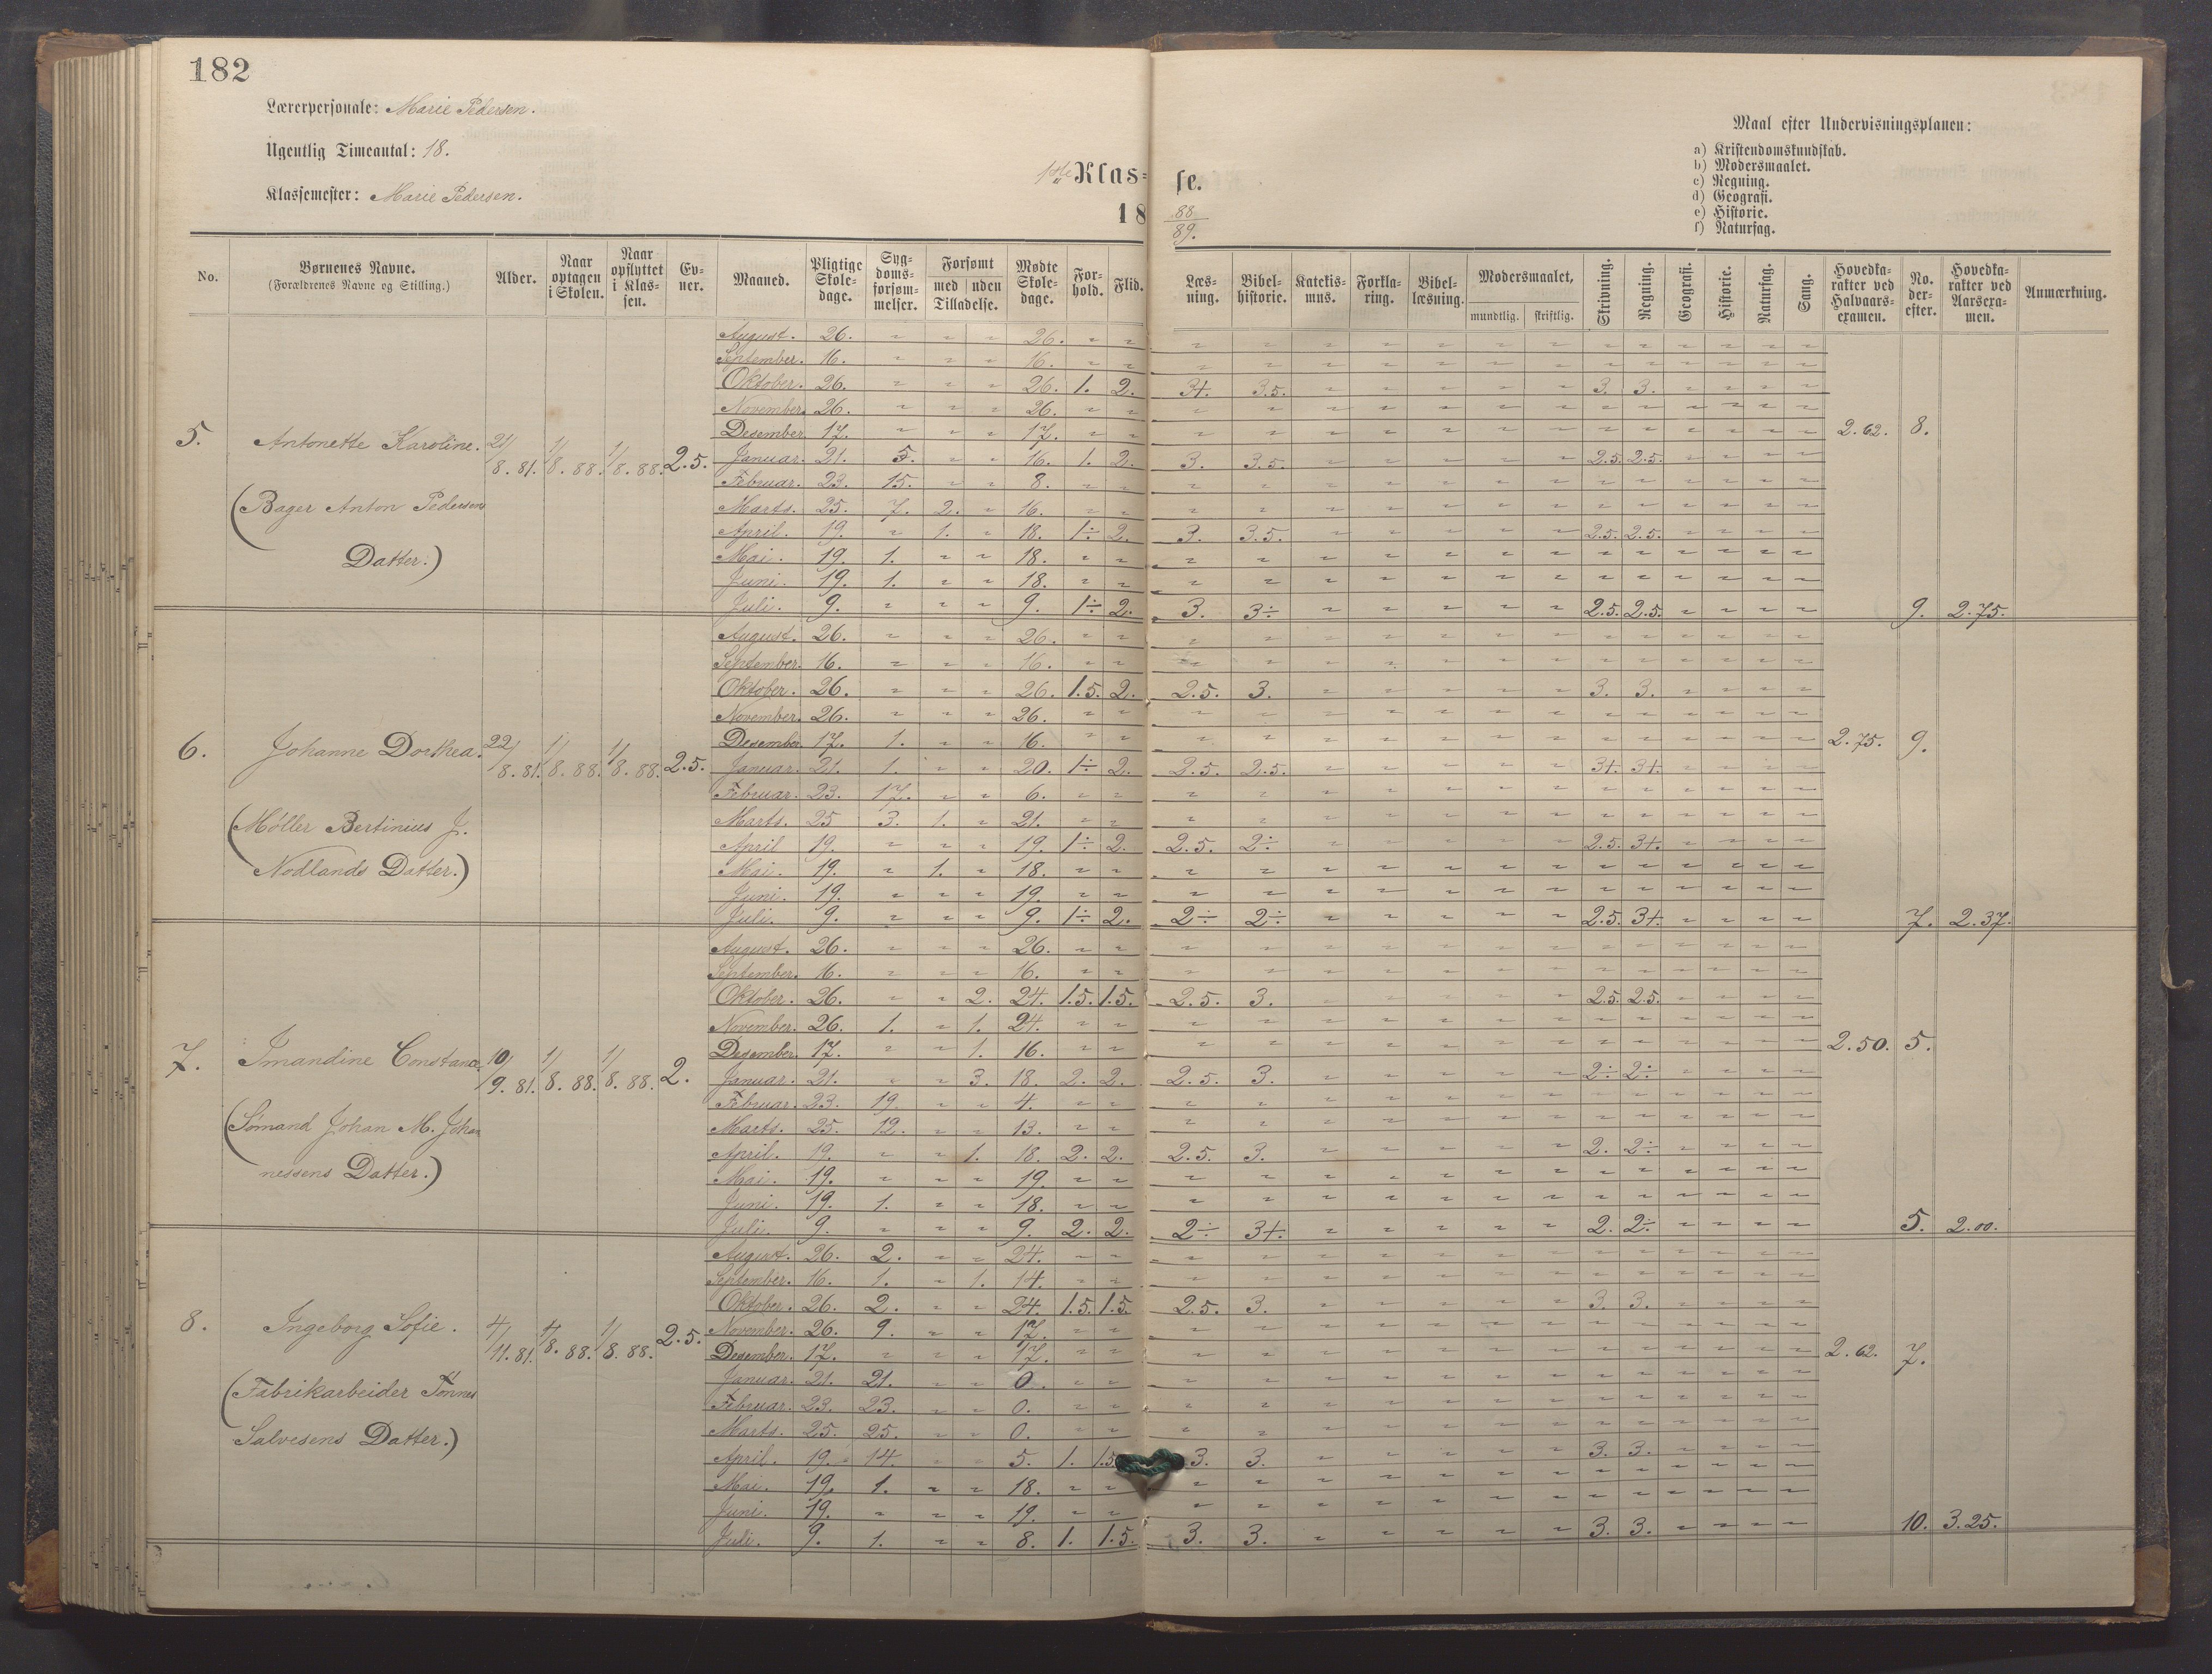 182
Lærerpersonale: Marie Pedersen.
Ugentlig Timeantal: 18.
Klassemester: Marie Pedersen.
1ste Klas= se.
18 88/89.
Maal efter Undervisningsplanen:
a) Kristendomskundskab.
b) Modersmaalet.
c) Regning.
d) Geografi.
e) Historie.
f) Naturfag.
No. | Børnenes Navne. (Forældrenes Navne og Stilling.) | Alder. | Naar optagen i Skolen. | Naar opflyttet i Klassen. | Evner. | Maaned. | Pligtige Skoledage. | Sygdomsforsømmelser. | Forsømt med | uden Tilladelse. | Mødte Skoledage. | Forhold. | Flid. | Læsning. | Bibelhistorie. | Katekismus. | Forklaring. | Bibellæsning. | Modersmaalet, mundtlig. | skriftlig. | Skrivning. | Regning. | Geografi. | Historie. | Naturfag. | Sang. | Hovedkarakter ved Halvaarsexamen. | No. derefter. | Hovedkarakter ved Aarsexamen. | Anmærkning.
5. Antonette Karoline. 21/8. 81. 1/8. 88. 1/8. 88. 2.5.
(Bager Anton Pedersens
Datter.)
August. 26. " " " 26. " "
September. 16. " " " 16. " "
Oktober. 26. " " " 26. 1. 2. 3+. 3.5. 3. 3.
November. 26. " " " 26. " "
Desember. 17. " " " 17. " " 2.62. 8.
Januar. 21. 5. " " 16. 1. 2. 3. 3.5. 2.5. 2.5.
Februar. 23. 15. " " 8. " "
Marts. 25. 7. 2. " 16. " "
April. 19. " 1. " 18. 1÷ 2. 3. 3.5. 2.5. 2.5.
Mai. 19. 1. " " 18. " "
Juni. 19. 1. " " 18. " "
Juli. 9. " " " 9. 1÷ 2. 3. 3÷ 2.5. 2.5. 9. 2.75.
6. Johanne Dorthea. 22/8. 81. 1/8. 88. 1/8. 88. 2.5.
(Möller Bertinius J.
Nodlands Datter.)
August. 26. " " " 26. " "
September. 16. " " " 16. " "
Oktober. 26. " " " 26. 1.5. 2. 2.5. 3. 3. 3.
November. 26. " " " 26. " "
Desember. 17. 1. " " 16. " " 2.75. 9.
Januar. 21. 1. " " 20. 1÷ 2. 2.5. 2.5. 3+. 3+.
Februar. 23. 17. " " 6. " "
Marts. 25 3. 1. " 21. " "
April 19. " " " 19. 1÷ 2. 2.5. 2÷ 2.5. 3+.
Mai. 19. " 1. " 18. " "
Juni. 19. " " " 19. " "
Juli. 9. " " " 9. 1÷ 2. 2÷ 2÷ 2.5. 3+. 7. 2.37.
7. Imandine Constance. 10/9. 81. 1/8. 88. 1/8. 88. 2.
(Sömand Johan M. Johan
nessens Datter.)
August. 26. " " " 26. " "
September. 16. " " " 16. " "
Oktober. 26. " " 2. 24. 1.5. 1.5. 2.5. 3. 2.5. 2.5.
November. 26. 1. " 1. 24. " "
Desember. 17. " " 1. 16. " " 2.50. 5.
Januar. 21. " " 3. 18. 2. 2. 2.5. 3. 2÷ 2÷
Februar. 23. 19. " " 4. " "
Marts. 25. 12. " " 13. " "
April. 19. " " 1. 18. 2. 2. 2.5. 3. 2. 2÷
Mai. 19. " " " 19. " "
Juni. 19. 1. " " 18. " "
Juli. 9. " " " 9. 2. 2. 2÷ 3+. 2. 2÷ 5. 2.00.
8. Ingeborg Sofie. 4/11. 81. 1/8. 88. 1/8. 88. 2.5.
(Fabrikarbeider Tönnes
Salvesens Datter.)
August. 26. 2. " " 24. " "
September. 16. 1. " 1. 14. " "
Oktober. 26. 2. " " 24. 1.5. 1.5. 2.5. 3. 3. 3.
November. 26. 9. " " 17. " "
Desember. 17. " " " 17. " " 2.62. 7.
Januar. 21. 21. " " 0. " "
Februar. 23. 23. " " 0. " "
Marts. 25. 25. " " 0. " "
April. 19. 14. " " 5. 1. 1.5 3. 3. 3. 3.
Mai. 19. 1. " " 18. " "
Juni. 19. " " " 19. " "
Juli. 9. 1. " " 8. 1. 1.5. 3. 3. 3. 3. 10. 3.25.